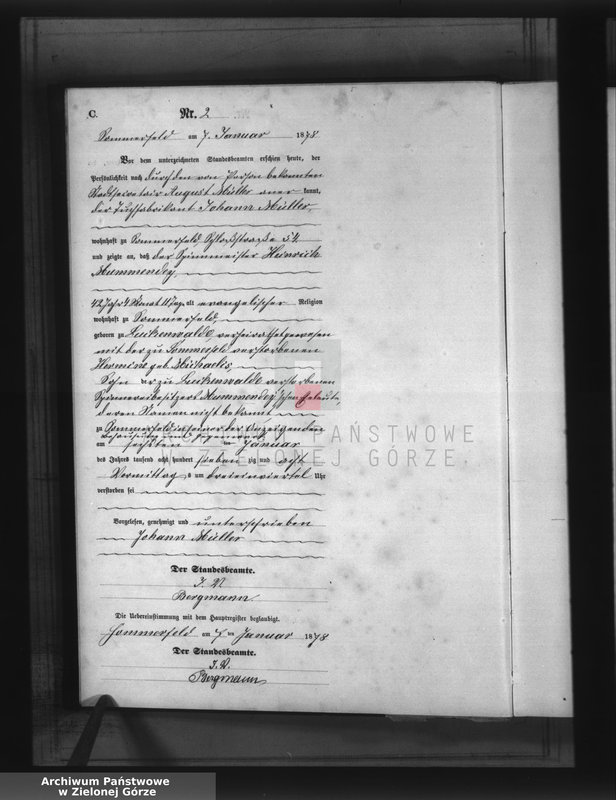 C. Nr. 2
Sommerfeld am 7. Januar 1878
Vor dem unterzeichneten Standesbeamten erschien heute, der
Persönlichkeit nach durch den von Person bekannten
Stadtsecretair August Müller aner kannt,
der Tuchfabrikant Johann Müller,
wohnhaft zu Sommerfeld, Schloßstraße 54
und zeigte an, daß der Spinnmeister Heinrich
Mummendey,
42 Jahr 4 Monat 11 Tage alt evangelischer Religion
wohnhaft zu Sommerfeld,
geboren zu Luckenwalde, verheirathet gewesen
mit der zu Sommerfeld verstorbenen
Hermine geb. Michaelis,
Sohn der zu Luckenwalde verstorbenen
Spinnereibesitzer Mummendey'schen Eheleute,
deren Namen nicht bekannt
zu Sommerfeld in seiner des Anzeigenden
am sechsten Januar
des Jahres tausend acht hundert sieben zig und acht
Vormittag s um dreieinviertel Uhr
verstorben sei
Vorgelesen, genehmigt und unterschrieben
Johann Müller
Der Standesbeamte.
I. V.
Bergmann
Die Uebereinstimmung mit dem Hauptregister beglaubigt.
Sommerfeld am 7 ten Januar 1878
Der Standesbeamte.
I. V.
Bergmann
PAŃSTWOWE
ZIELONEJ GÓRZE
Archiwum Państwowe
w Zielonej Górze